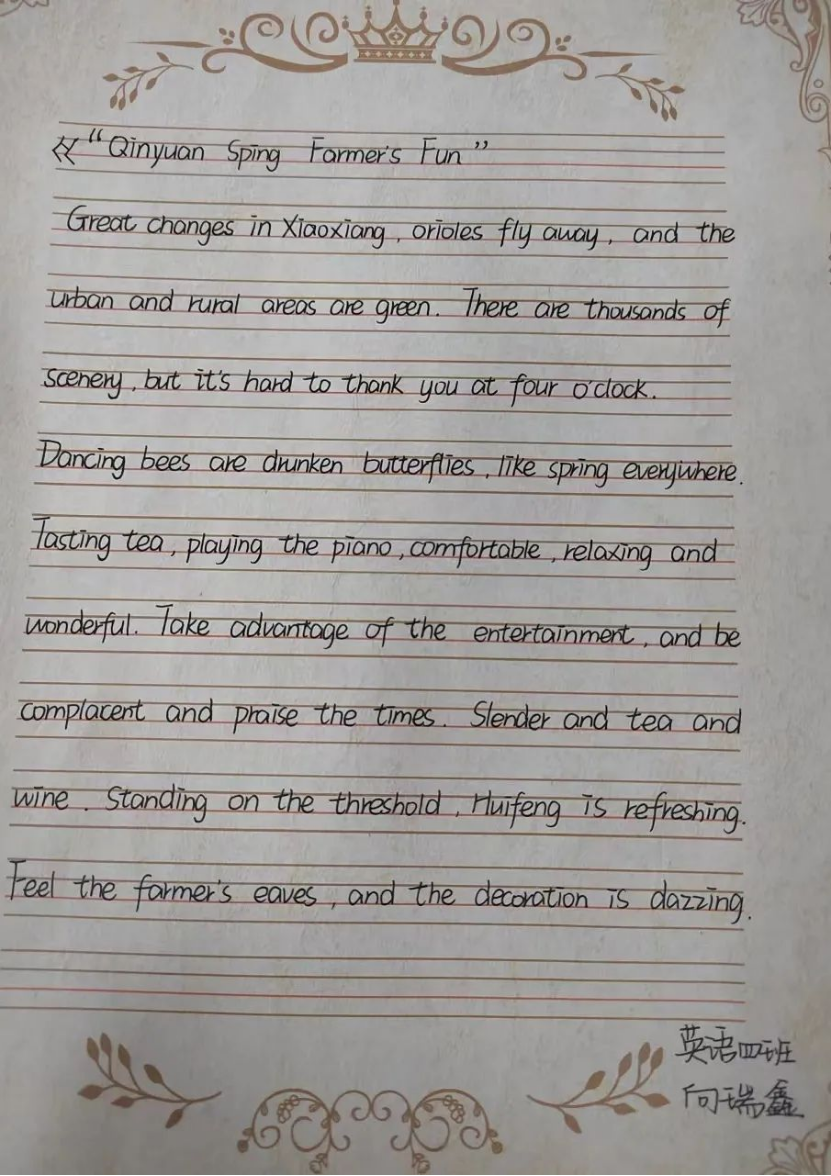 《“Qinyuan Sping Farmer's Fun”
Great changes in Xiaoxiang, orioles fly away, and the
urban and rural areas are green. There are thousands of
scenery, but it's hard to thank you at four o'clock.
Dancing bees are drunken butterflies, like spring everywhere.
Tasting tea, playing the piano, comfortable, relaxing and
wonderful. Take advantage of the entertainment, and be
complacent and praise the times. Slender and tea and
wine. Standing on the threshold, Huifeng is refreshing.
Feel the farmer's eaves, and the decoration is dazzing.
英语四班
向瑞鑫